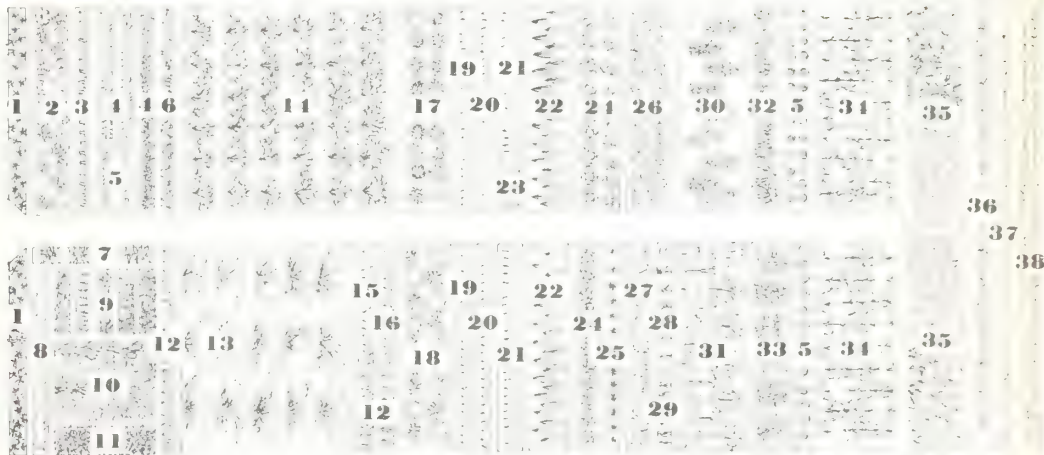 19 21
1 2 3 4 4 6 14 17 20 22 24 26 30 32 5 34 35
5 23
36
37
7 38
9 15 19 22 27
1
8 12 13 16 18 20 21 24 25 28 31 33 5 34 35
10
12 29
11